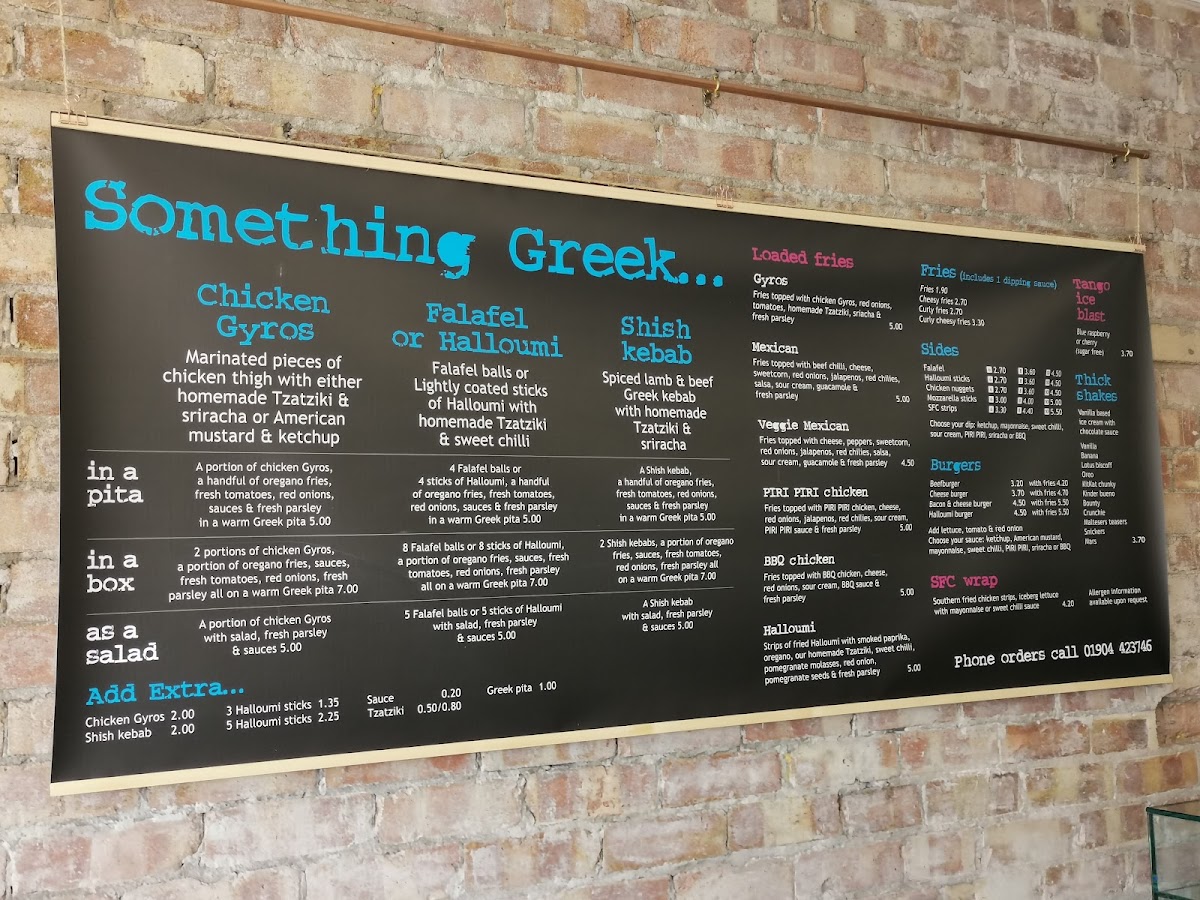 Something Greek...
Chicken
Gyros
Marinated pieces of
chicken thigh with either
homemade Tzatziki &
sriracha or American
mustard & ketchup
Falafel
or Halloumi
Falafel balls or
Lightly coated sticks
of Halloumi with
homemade Tzatziki
& sweet chilli
Shish
kebab
Spiced lamb & beef
Greek kebab
with homemade
Tzatziki &
sriracha
in a
pita
A portion of chicken Gyros,
a handful of oregano fries,
fresh tomatoes, red onions,
sauces & fresh parsley
in a warm Greek pita 5.00
4 Falafel balls or
4 sticks of Halloumi, a handful
of oregano fries, fresh tomatoes,
red onions, sauces & fresh parsley
in a warm Greek pita 5.00
A Shish kebab,
a handful of oregano fries,
fresh tomatoes, red onions,
sauces & fresh parsley
in a warm Greek pita 5.00
in a
box
2 portions of chicken Gyros,
a portion of oregano fries, sauces,
fresh tomatoes, red onions, fresh
parsley all on a warm Greek pita 7.00
8 Falafel balls or 8 sticks of Halloumi,
a portion of oregano fries, sauces, fresh
tomatoes, red onions, fresh parsley
all on a warm Greek pita 7.00
2 Shish kebabs, a portion of oregano
fries, sauces, fresh tomatoes,
red onions, fresh parsley all
on a warm Greek pita 7.00
as a
salad
A portion of chicken Gyros
with salad, fresh parsley
& sauces 5.00
5 Falafel balls or 5 sticks of Halloumi
with salad, fresh parsley
& sauces 5.00
A Shish kebab
with salad, fresh parsley
& sauces 5.00
Add Extra...
Chicken Gyros 2.00
Shish kebab 2.00
3 Halloumi sticks 1.35
5 Halloumi sticks 2.25
Sauce 0.20
Tzatziki 0.50/0.80
Greek pita 1.00
Loaded fries
Gyros
Fries topped with chicken Gyros, red onions,
tomatoes, homemade Tzatziki, sriacha &
fresh parsley 5.00
Mexican
Fries topped with beef chilli, cheese,
sweetcorn, red onions, jalapenos, red chilies,
salsa, sour cream, guacamole &
fresh parsley 5.00
Veggie Mexican
Fries topped with cheese, peppers, sweetcorn,
red onions, jalapenos, red chilies, salsa,
sour cream, guacamole & fresh parsley 4.50
PIRI PIRI chicken
Fries topped with PIRI PIRI chicken, cheese,
red onions, jalapenos, red chilies, sour cream,
PIRI PIRI sauce & fresh parsley 5.00
BBQ chicken
Fries topped with BBQ chicken, cheese,
red onions, sour cream, BBQ sauce &
fresh parsley 5.00
Halloumi
Strips of fried Halloumi with smoked paprika,
oregano, our homemade Tzatziki, sweet chilli,
pomegranate molasses, red onion,
pomegranate seeds & fresh parsley 5.00
Fries (includes 1 dipping sauce)
Fries 1.90
Cheesy fries 2.70
Curly fries 2.70
Curly cheesy fries 3.30
Sides
Falafel 2.70 3.60 4.50
Halloumi sticks 2.70 3.60 4.50
Chicken nuggets 2.70 3.60 4.50
Mozzarella sticks 3.00 4.00 5.00
SFC strips 3.30 4.40 5.50
Choose your dip: ketchup, mayonnaise, sweet chilli,
sour cream, PIRI PIRI, sriracha or BBQ
Burgers
Beefburger 3.20 with fries 4.20
Cheese burger 3.70 with fries 4.70
Bacon & cheese burger 4.50 with fries 5.50
Halloumi burger 4.50 with fries 5.50
Add lettuce, tomato & red onion
Choose your sauce: ketchup, American mustard,
mayonnaise, sweet chilli, PIRI PIRI, sriracha or BBQ
SFC wrap
Southern fried chicken strips, iceberg lettuce
with mayonnaise or sweet chilli sauce 4.20
Tango
ice
blast
Blue raspberry
or cherry
(sugar free) 3.70
Thick
shakes
Vanilla based
ice cream with
chocolate sauce
Vanilla
Banana
Lotus biscoff
Oreo
KitKat chunky
Kinder bueno
Bounty
Crunchie
Maltesers teasers
Snickers
Mars 3.70
Allergen information
available upon request
Phone orders call 01904 423746